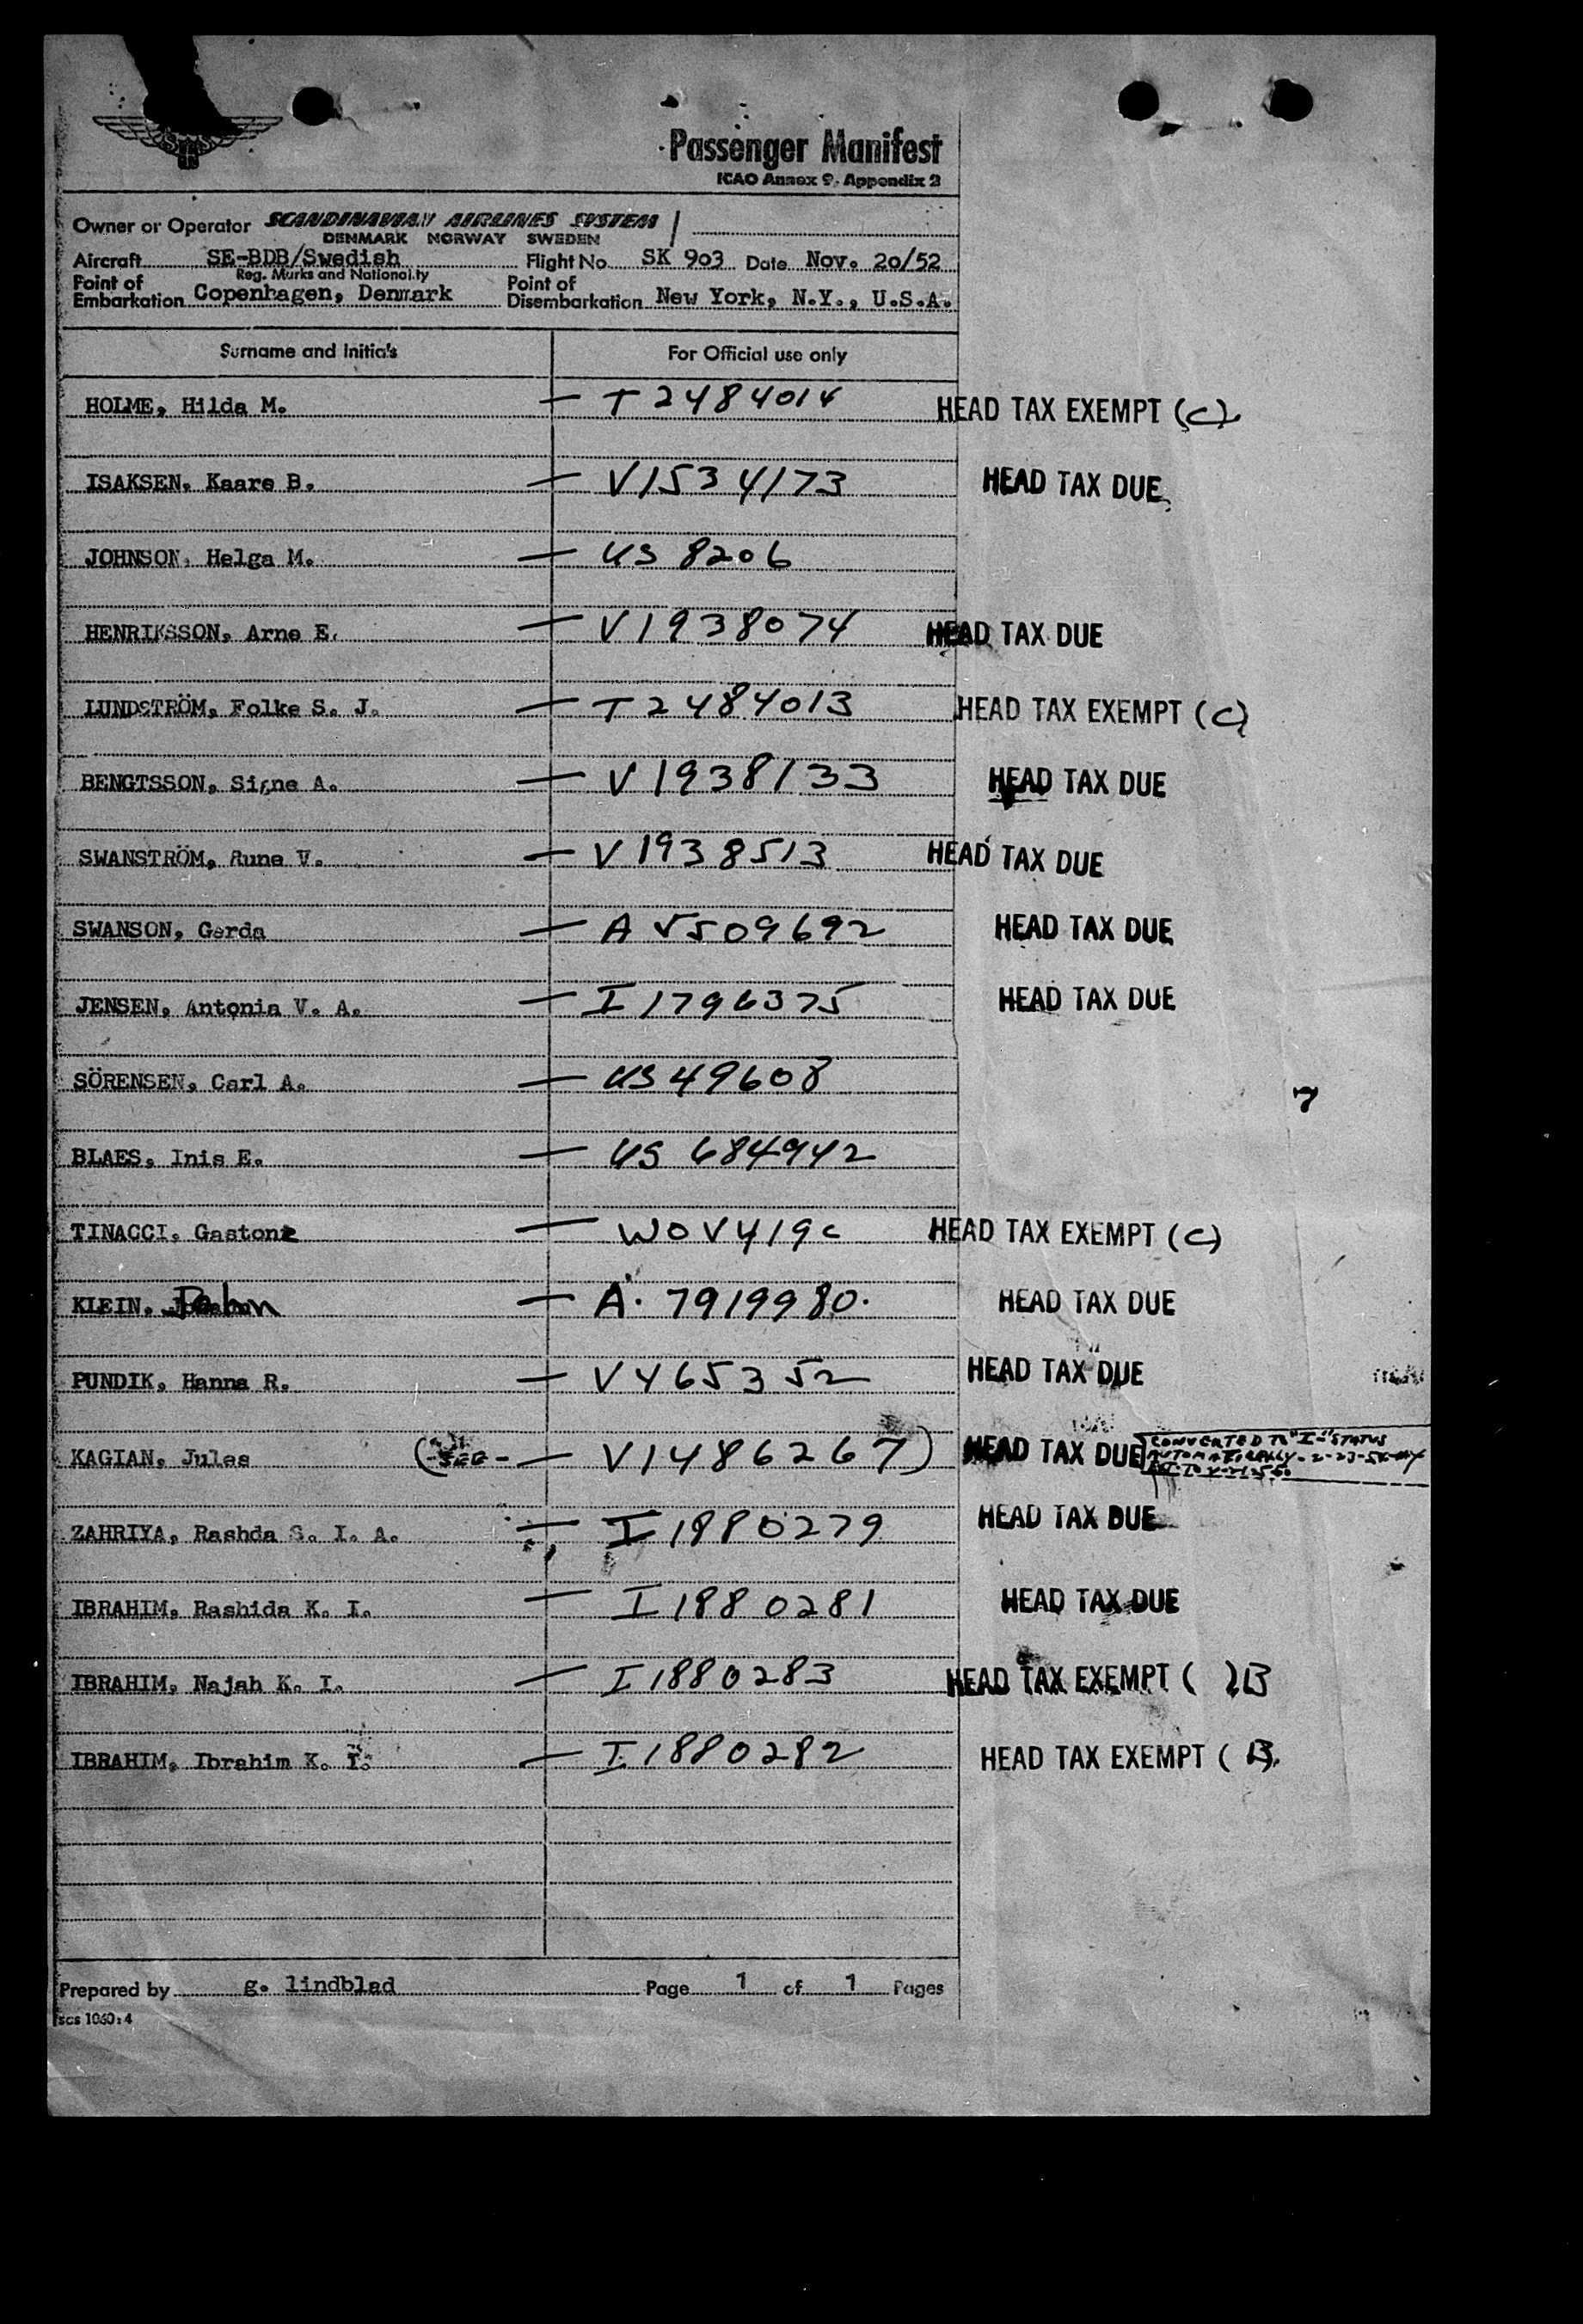 SAS
Passenger Manifest
ICAO Annex 9, Appendix 2
Owner or Operator SCANDINAVIAN AIRLINES SYSTEM
DENMARK NORWAY SWEDEN
Aircraft SE-BDB/Swedish Flight No SK 903 Date Nov. 20/52
Reg. Marks and Nationality
Point of Embarkation Copenhagen, Denmark Point of Disembarkation New York, N.Y., U.S.A.
Surname and Initials For Official use only
HOLME, Hilda M. — T2484014 HEAD TAX EXEMPT (C)
ISAKSEN, Kaare B. — V1534173 HEAD TAX DUE
JOHNSON, Helga M. — US 8206
HENRIKSSON, Arne E. — V1938074 HEAD TAX DUE
LUNDSTRÖM, Folke S. J. — T2484013 HEAD TAX EXEMPT (C)
BENGTSSON, Signe A. — V1938133 HEAD TAX DUE
SWANSTRÖM, Rune V. — V1938513 HEAD TAX DUE
SWANSON, Gerda — A V509692 HEAD TAX DUE
JENSEN, Antonia V. A. — I1796375 HEAD TAX DUE
SÖRENSEN, Carl A. — US49608
7
BLAES, Inis E. — US 684942
TINACCI, Gastone — WOV419c HEAD TAX EXEMPT (C)
KLEIN, John — A. 7919980. HEAD TAX DUE
PUNDIK, Hanna R. — V465352 HEAD TAX DUE
KAGIAN, Jules — V1486267) HEAD TAX DUE CONVERTED TO "I" STATUS
AUTOMATICALLY
ZAHRIYA, Rashda S. I. A. — I1880279 HEAD TAX DUE
IBRAHIM, Rashida K. I. — I1880281 HEAD TAX DUE
IBRAHIM, Najah K. I. — I1880283 HEAD TAX EXEMPT ( )B
IBRAHIM, Ibrahim K. I. — I1880282 HEAD TAX EXEMPT (B)
Prepared by g. lindblad Page 1 of 1 Pages
scs 1060:4